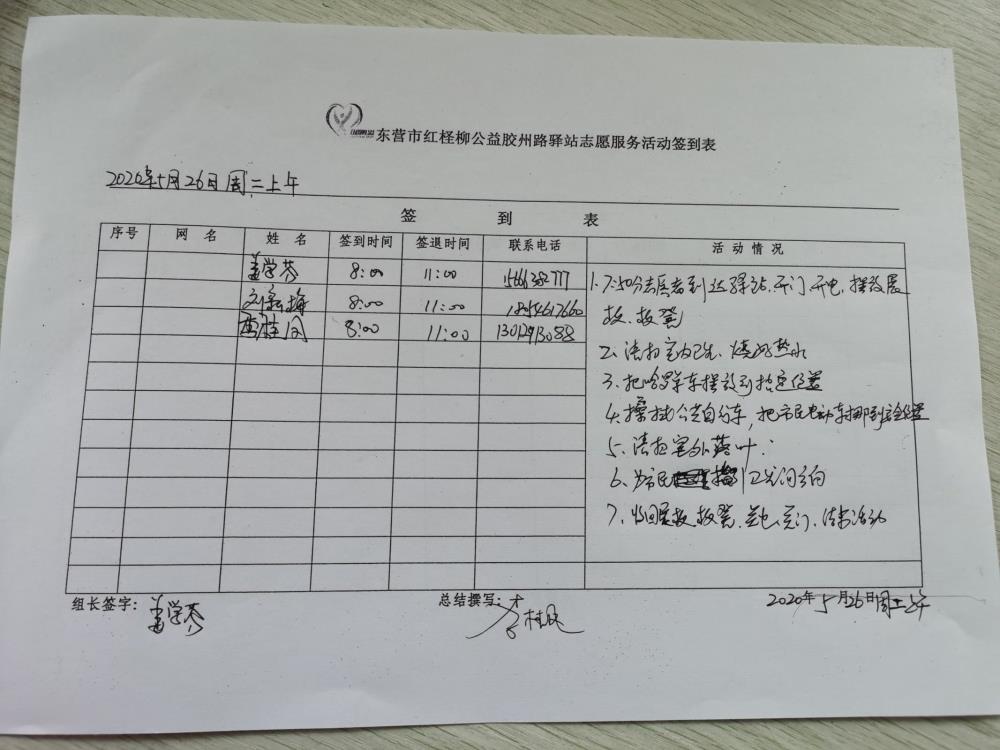 东营市红柽柳公益胶州路驿站志愿服务活动签到表
2020年5月26日周二上午
签 到 表
序号 网 名 姓 名 签到时间 签退时间 联系电话 活 动 情 况
盖学芬 8:00 11:00
8:00 11:00
8:00 11:00
1. 7:50分志愿者到达驿站.开门.开电.摆放展
板.板凳
2、清扫室内卫生.烧好热水
3、把哈罗单车摆放到指定位置
4、擦拭公共自行车,把市民电动车挪到位置
5、清扫室外落叶.
6、为市民
7、收回展板板凳.关电.关门.结束活动
组长签字: 盖学芬 总结撰写: 2020年5月26日周二上午